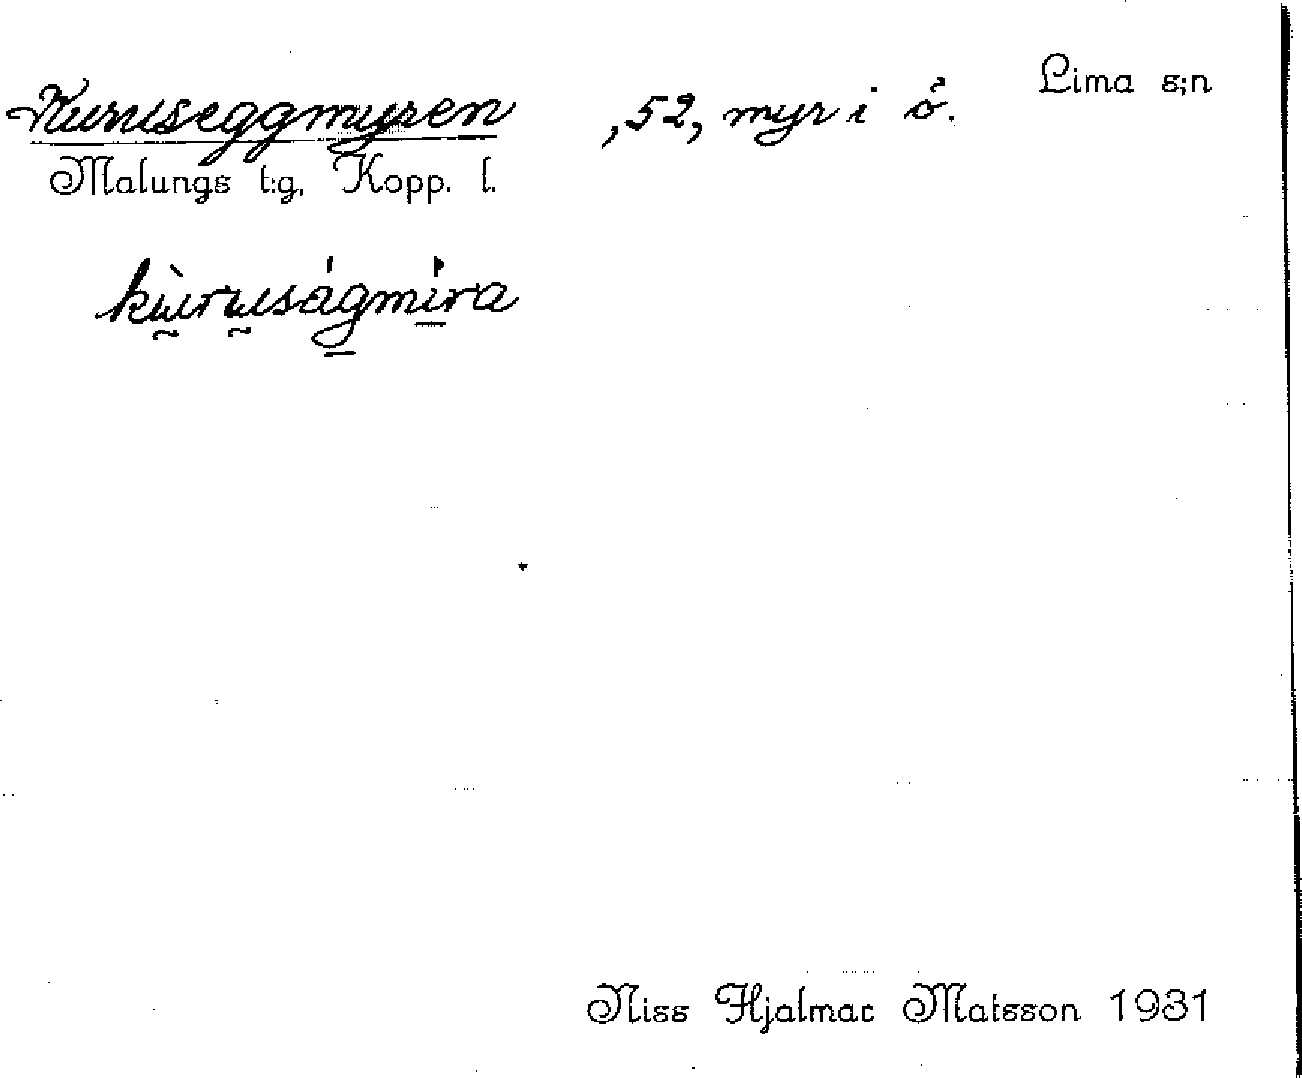 Kuruseggmyren , 52, myr i ö. Lima s:n
Malungs t:g, Kopp. l.
kùruságmira
Niss Hjalmar Matsson 1931